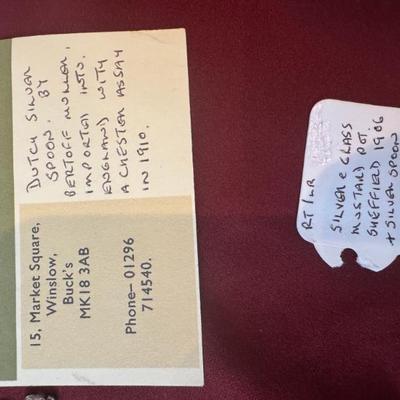 15, Market Square,
Winslow,
Buck's
MK18 3AB
Phone– 01296
714540.
DUTCH SILVER
SPOON. BY
BERTOFF MULLER,
IMPORTED INTO
ENGLAND WITH
A CHESTER ASSAY
IN 1910.
RT/LR
SILVER & GLASS
MUSTARD POT.
SHEFFIELD 1906
+ SILVER SPOON